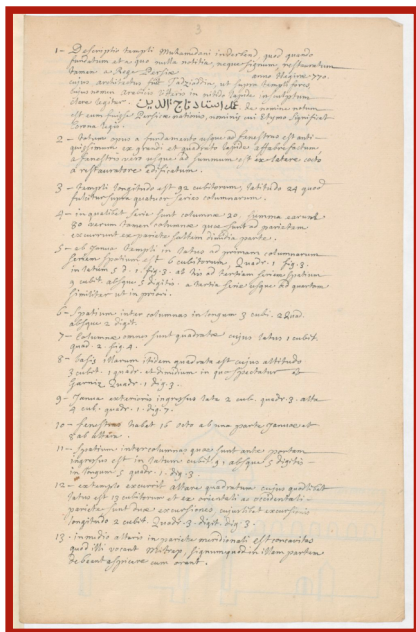 3
1 - Descriptio templi Muhamdani in derbend, quod quando
fundatum et a quo nulla notitia, neque signum, restauratum
tamen a Rege Persiæ anno Hegiræ 770.
cujus architectus fuit Tadziaddin, ut supra templi fores
cujus nomen Arabicis literis in nitido lapide insculptum
clare legitur. تاج الدين
est enim Persica
corona legis.
2 - totum opus a fundamento usque ad fenestras est anti-
quissimum ex grandi et quadrato lapide affabre factum
a fenestris vero usque ad summum est ex latere cocto
a restauratore ædificatum.
3 - templi longitudo est 92 cubitorum, latitudo 24 quod
supra quatuor series columnarum.
4 - in qualibet serie sunt columnæ 20, summa earum
80 verum tamen columnæ quæ sunt ad parietem
excurrunt ex pariete saltem dimidia parte.
5 - ab Janua templi in latus ad primam columnarum
seriem spatium est 6 cubitorum, Quadr. 1 fig. 3.
in latum 5 d. 1. fig. 3. ab hac ad tertiam seriem spatium
9 cubit. absque 3 digitis. a tertia serie usque ad quartam
similiter ut in priori.
6 - Spatium inter columnas in longum 3 cubi. 2 Quad.
absque 2 digit.
7 - Columnæ omnes sunt quadratæ cujus latus 1 cubit.
quad. 2 fig. 4.
8 - basis illarum itidem quadrata est cujus altitudo
3 cubit. 1 quadr. et dimidium in qua spectatur
Quadr. 1. dig. 3.
9 - Januæ exterioris ingressus lata 2 cub. quadr. 3. alta
4 cub. quadr. 1. dig. 7.
10 - fenestras habet 16 octo ab una parte Januæ et
8 ab altera.
11 - Spatium inter columnas quæ sunt ante portam
ingressus est in latum cubit 9. absque 3 digitis
in longum 3 quadr. 1. dig. 3.
12 - ex templo excurrit altare quadratum cujus quodlibet
latus est 13 cubitorum et ex orientali et occidentali
pariete sunt duæ excursiones, cujuslibet excursionis
longitudo 2 cubit. Quadr. 3. digit. dig. 3.
13 - in medio altaris in pariete meridionali est concavitas
quod illi vocant Mitrap, signum quod in illam partem
debeant aspicere cum orant.